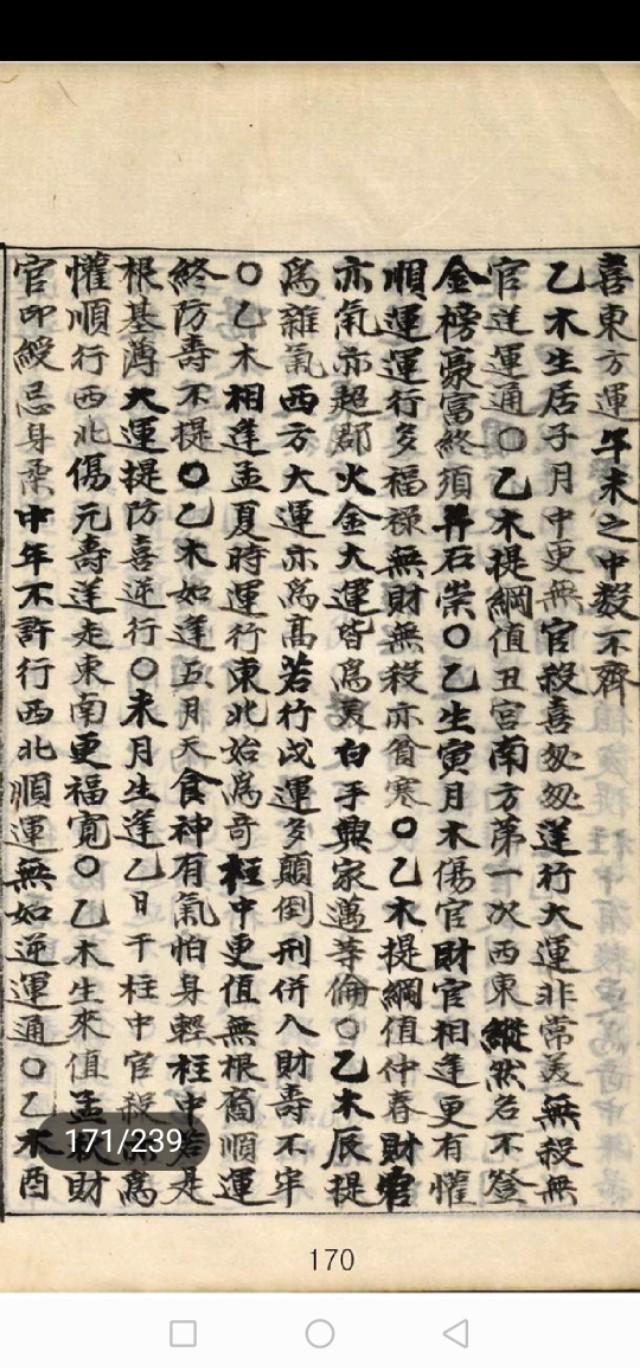 喜東方運午未之中数不齊
乙木生居子月中更無官殺喜匆匆逆行大運非常美無殺無
官逆運通○乙木提綱值丑宮南方第一次西東縱然名不登
金榜豪富終須并石崇○乙生寅月木傷官財官相逢更有懽
順運運行多福祿無財無殺亦貧寒○乙木提綱值仲春財官
亦氣亦超郡火金大運皆為美白手興家邁等倫○乙木辰提
為雜氣西方大運亦為高若行戌運多顛倒刑併入財壽不牢
○乙木相逢孟夏時運行東北始為奇柱中更值無根裔順運
終防壽不提○乙木如逢五月天食神有氣怕身輕柱中若是
根基薄大運提防喜逆行○未月生逢乙日干柱中官殺為
懽順行西北傷元壽逆走東南更福寬○乙木生來值孟秋財
官印綬忌身柔中年不許行西北順運無如逆運通○乙木酉
171/239
170